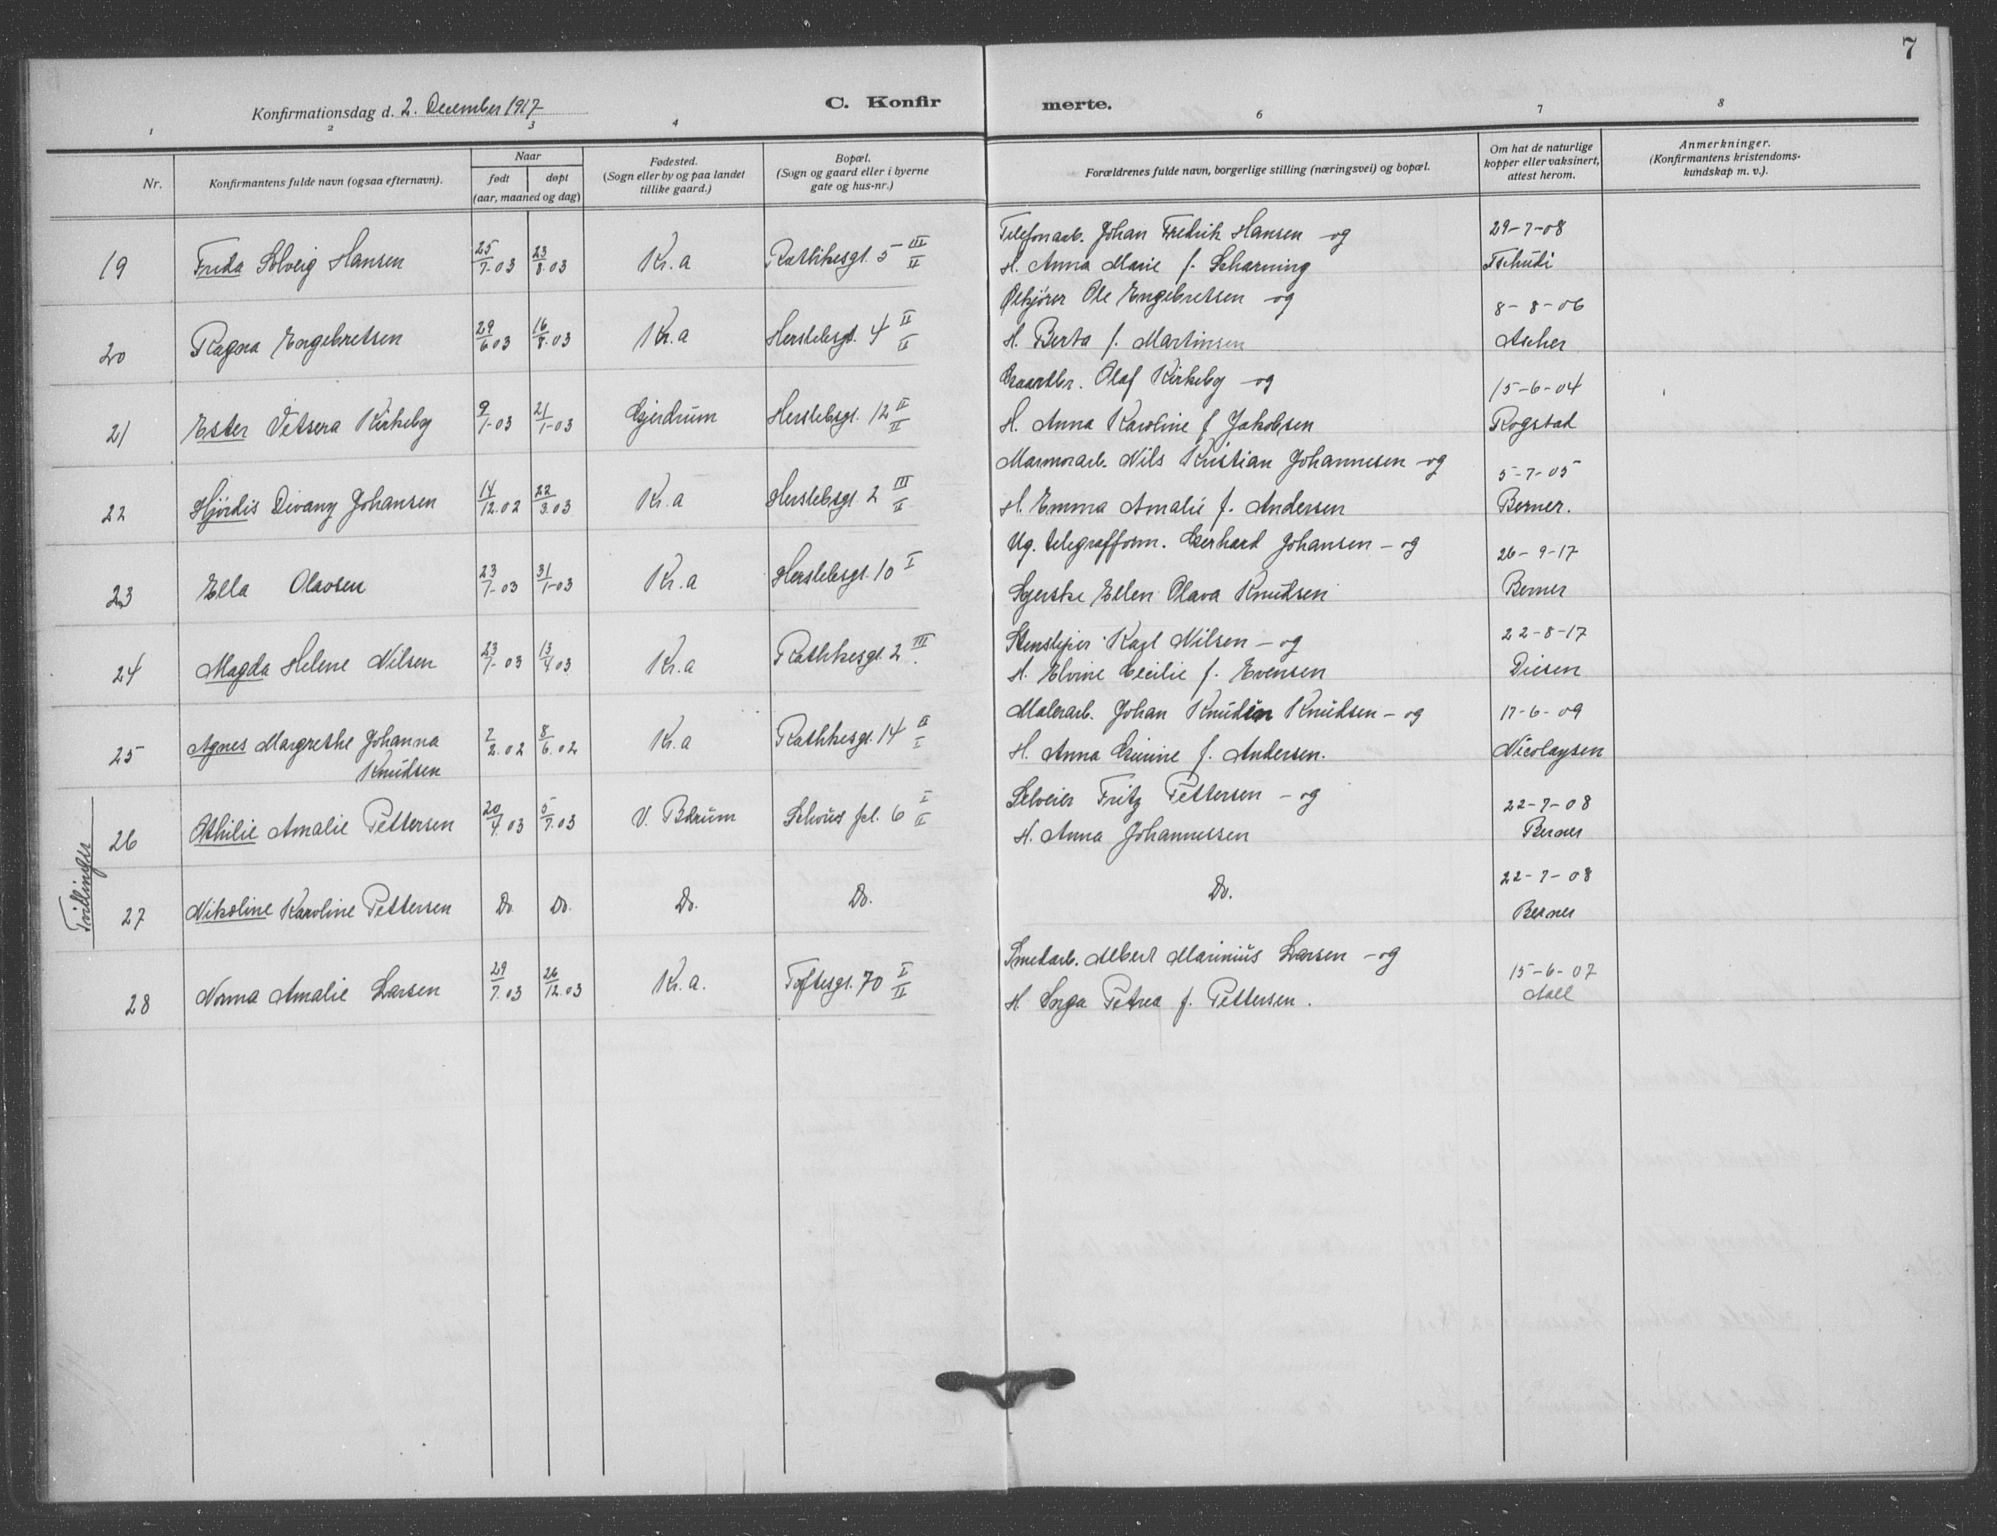 7
Konfirmationsdag d. 2. December 1917
C. Konfir merte.
1 2 3 4 6 7 8
Nr.
Konfirmantens fulde navn (ogsaa efternavn).
Naar
født døpt
(aar, maaned og dag)
Fødested.
(Sogn eller by og paa landet
tillike gaard.)
Bopæl.
(Sogn og gaard eller i byerne
gate og hus-nr.)
Forældrenes fulde navn, borgerlige stilling (næringsvei) og bopæl.
Om hat de naturlige
kopper eller vaksinert,
attest herom.
Anmerkninger.
(Konfirmantens kristendoms-
kundskap m. v.).
Telefonarb. Johan Fredrik Hansen - og 29-7-08
19 Frida Solveig Hansen 25/7.03 23/8.03 Kr.a Rathkesgt. 5 III/II H. Anna Marie f. Scharning Tschudi
Ølkjører Ole Engebretsen - og 8-8-06
20 Ragna Engebretsen 29/6.03 16/8.03 Kr.a Herslebsgt. 4 II/II H. Berta f. Martinsen Ascher
Gaardbr. Olaf Kirkeby - og 15-6-04
21 Ester Vetsera Kirkeby 9/1-03 21/1-03 Gjerdrum Herslebsgt. 12 II/II H. Anna Karoline f Jakobsen Rogstad
Marmorarb. Nils Kristian Johannesen - og 5-7-05
22 Hjørdis Divany Johansen 14/12.02 22/3.03 Kr.a Herslebsgt. 2 III/II H. Emma Amalie f. Andersen Berner.
Ug. telegrafform. Gerhard Johansen - og 26-9-17
23 Ella Olavsen 23/1-03 31/1-03 Kr.a Herslebsgt. 10 I Syerske Ellen Olava Knudsen Berner
Stensliper Karl Nilsen - og 22-8-17
24 Magda Helene Nilsen 23/1-03 13/4.03 Kr.a Rathkesgt. 2 III H. Elvine Cecilie f. Evensen Diesen
Malerarb. Johan Knudsen - og 17-6-09
25 Agnes Margrethe Johanna 2/2.02 8/6.02 Kr.a Rathkesgt. 14 II/I H. Anna Gurine f. Andersen. Nicolaysen
Knudsen
Tvillinger
Selveier Fritz Pettersen - og 22-7-08
26 Othilie Amalie Pettersen 20/4.03 5/7.03 V. Bærum Schous pl. 6 I/II H. Anna Johannessen Berner
22-7-08
27 Nikoline Karoline Pettersen Do Do. Do. Do. Do. Berner
Smedarb. Albert Marinius Larsen - og 15-6-07
28 Norma Amalie Larsen 29/7.03 26/12.03 Kr.a. Toftesgt. 70 I/II H. Inga Petrea f. Pettersen. Aall